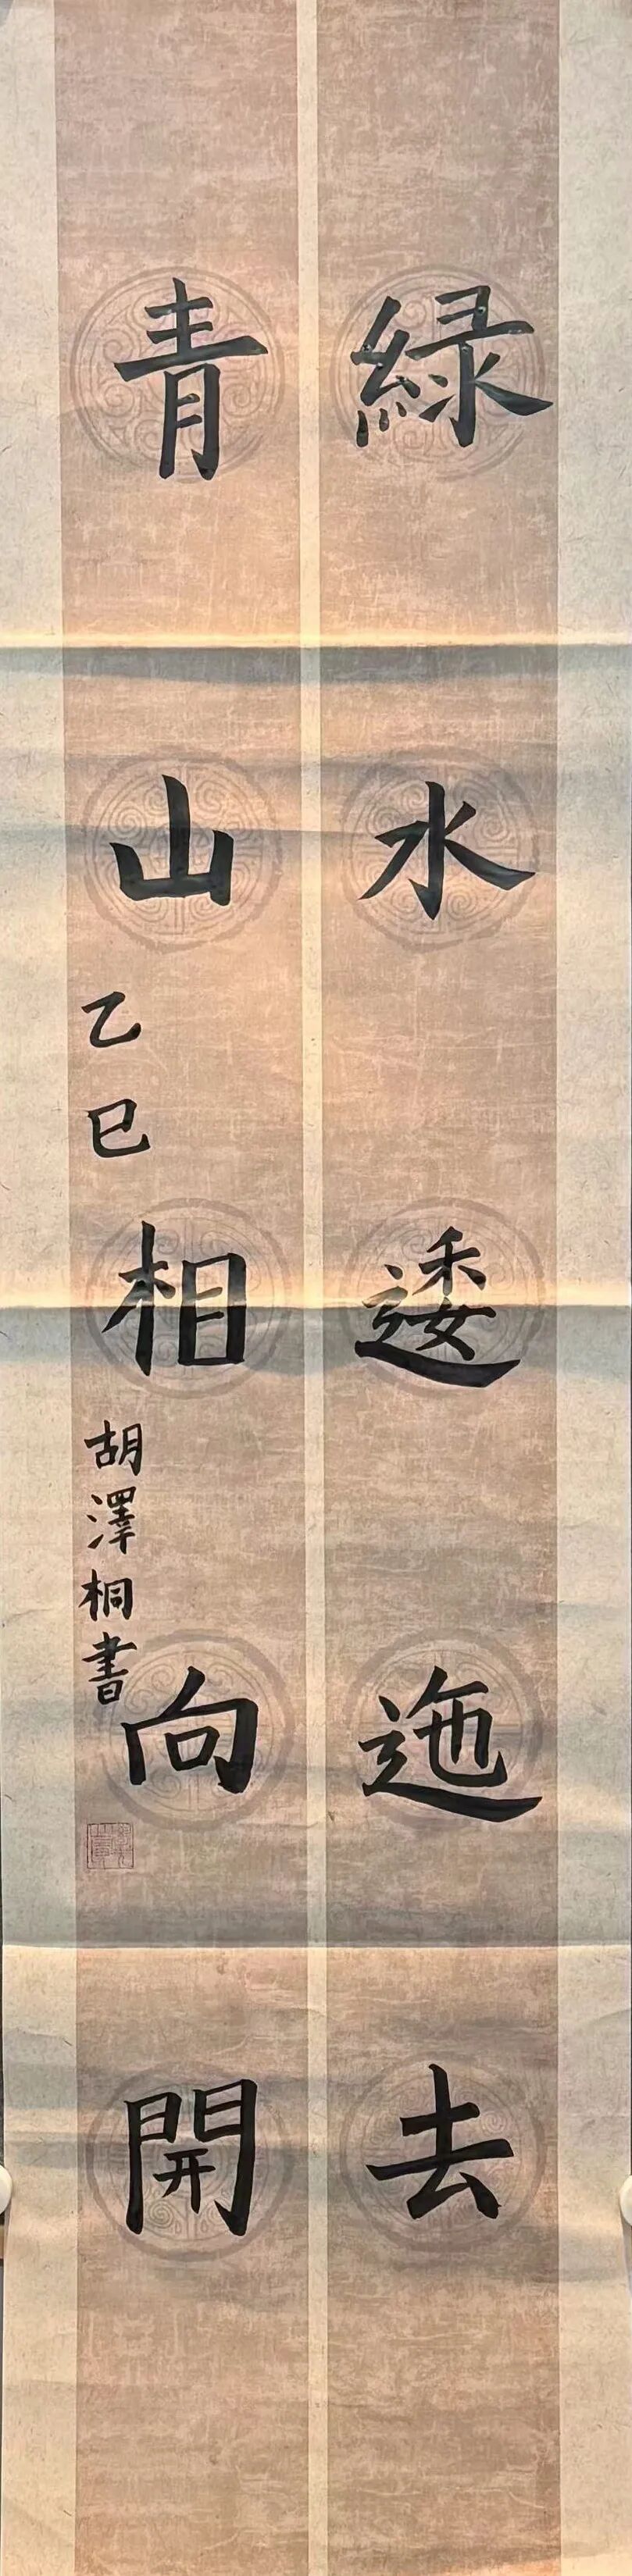 緑水逶迤去
青山相向開
乙巳 胡澤桐書